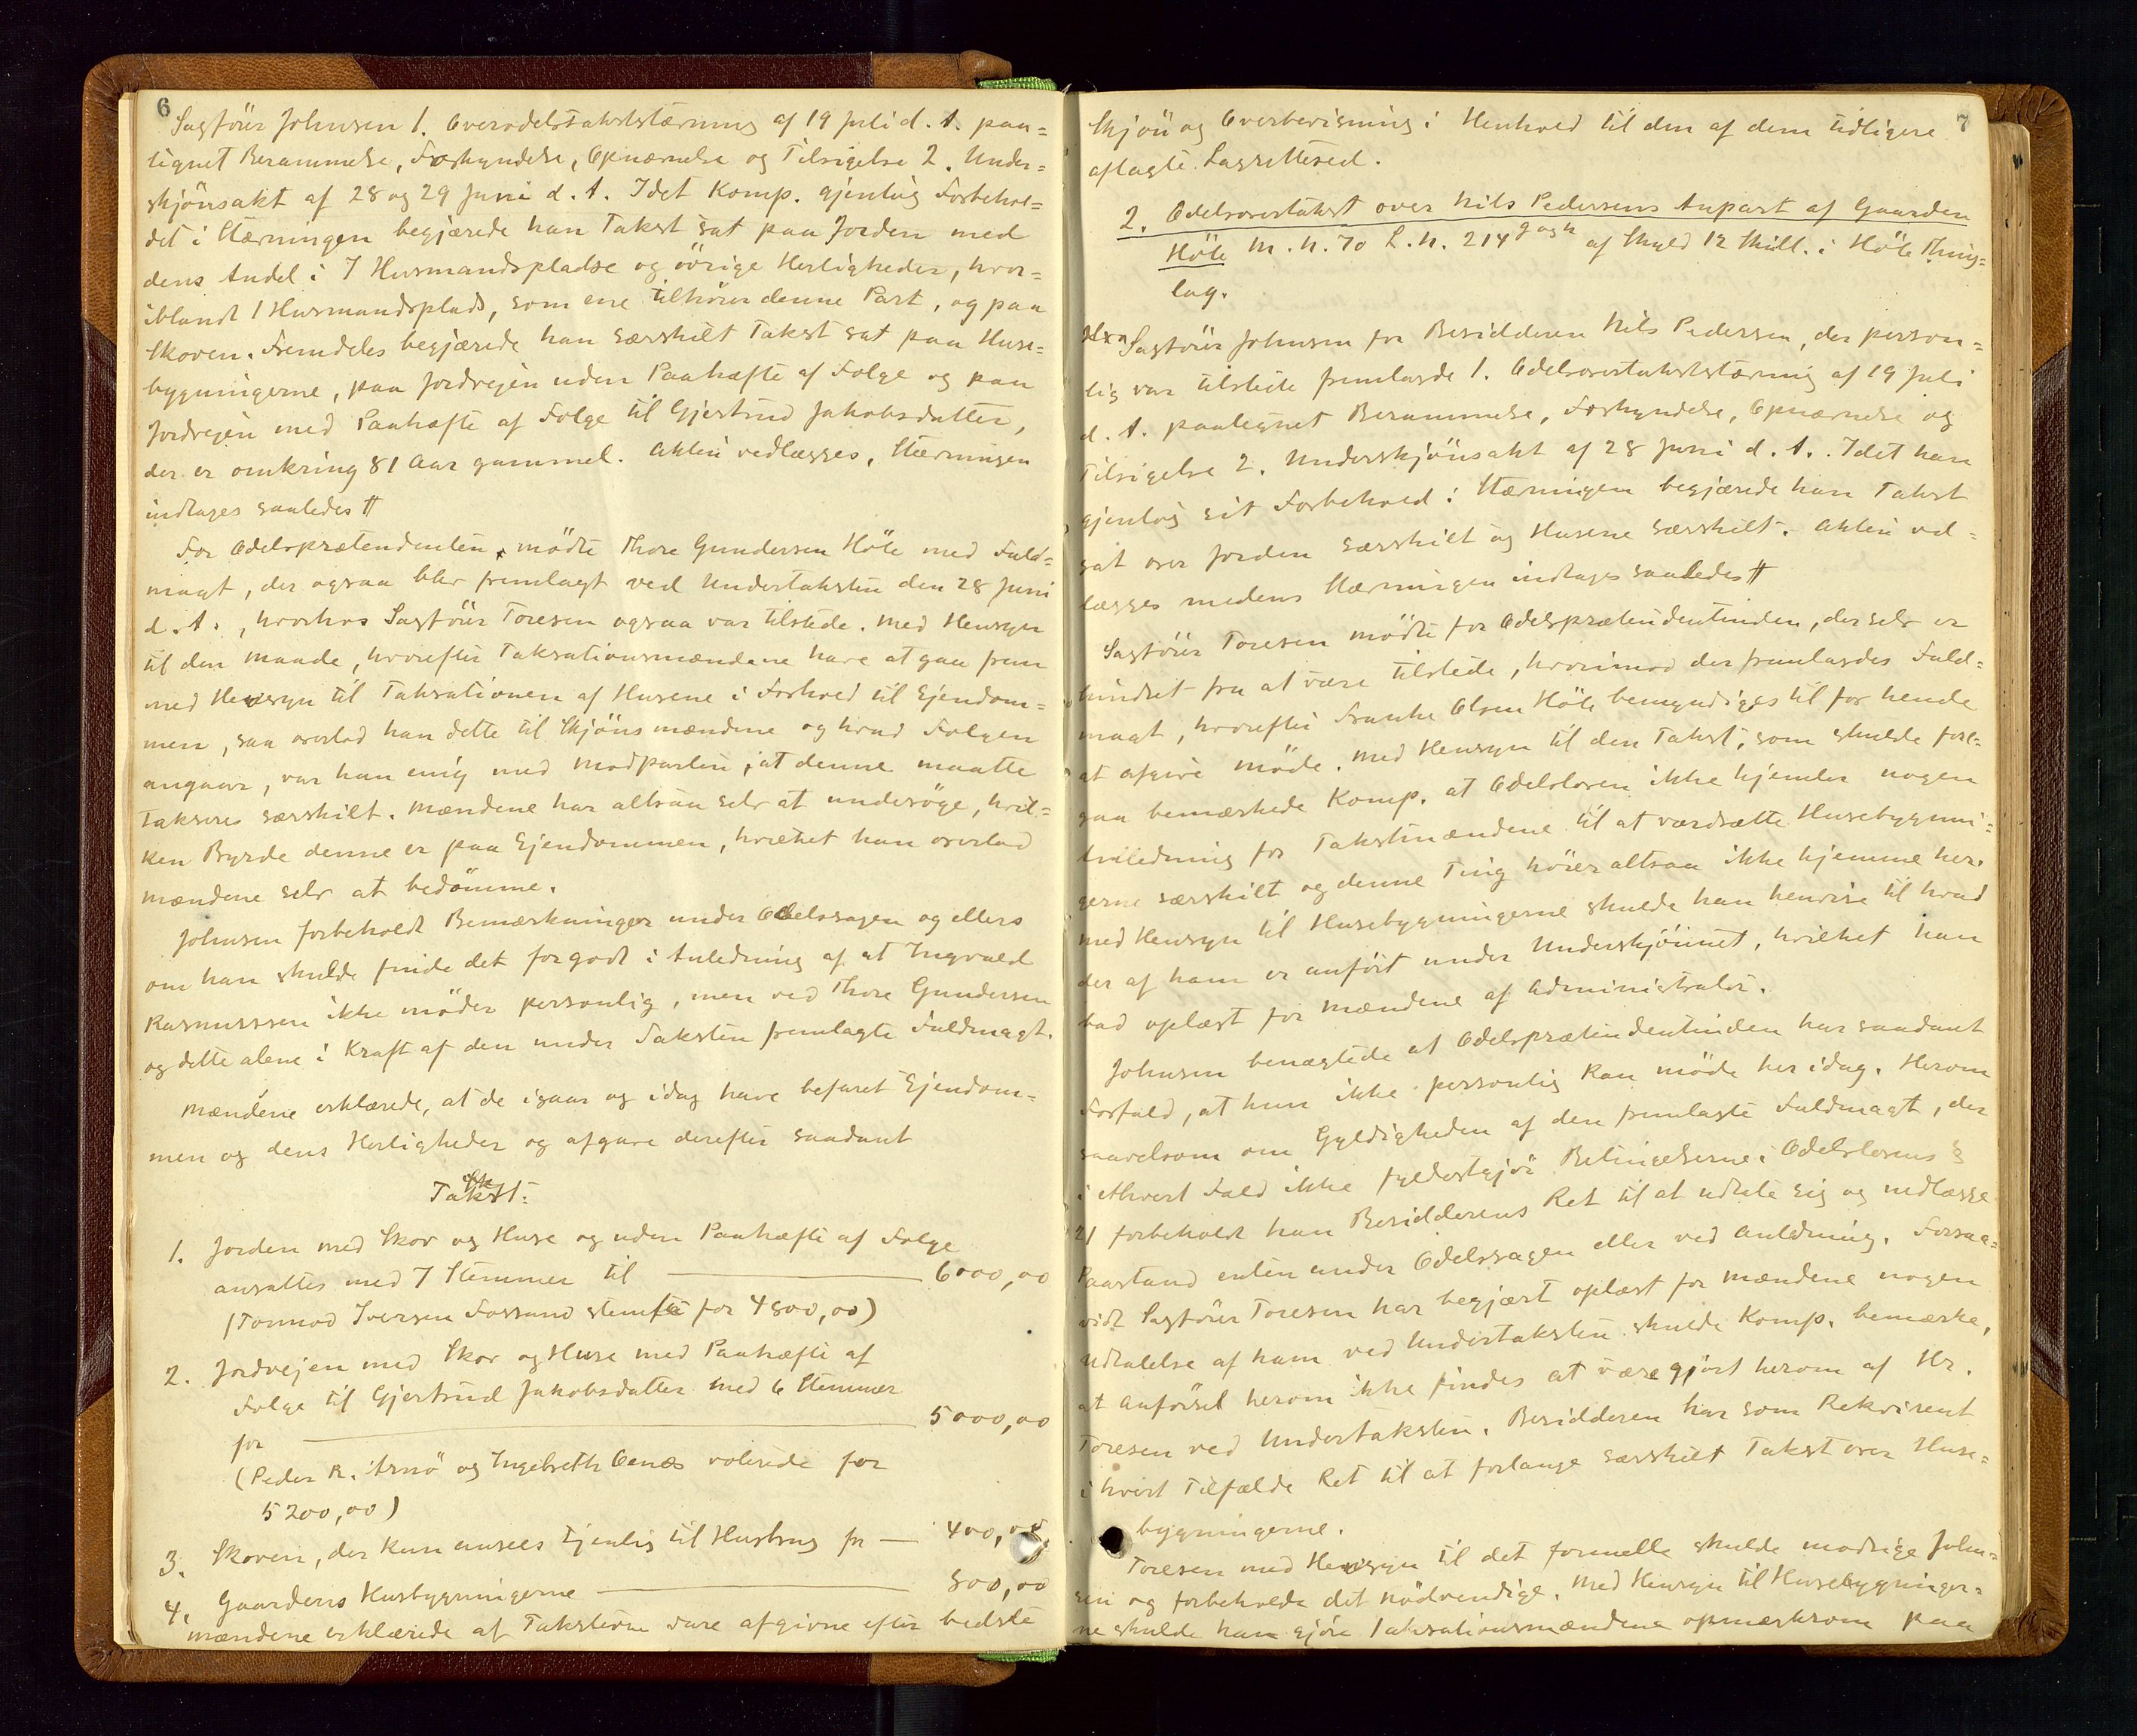 6
Sagfører Johnsen 1. Overodelstakststævning af 19 Juli d. A. paa=
tegnet Berammelse, Forkyndelse, Opnævnelse og Tilsigelse 2. Under=
skjönsakt af 28 og 29 Juni d. A. Idet Komp. gjentog Forbehol=
det i Stævningen begjærede han Takst sat paa Jorden med
dens Andel i 7 Husmandspladse og övrige Herligheder, hvor=
iblandt 1 Husmandsplads, som ene tilhörer denne Part, og paa
Skoven. Fremdeles begjærede han særskilt Takst sat paa Huse=
bygningerne, paa Jordvejen uden Paahæfte af Folge og paa
Jordvejen med Paahæfte af Folge til Gjertrud Jakobsdatter,
der er omkring 81 Aar gammel. Akten vedlægges, Stævningen
indtages saaledes ╫
For Odelsprætendenten mödte Thore Gundersen Höle med Fuld=
magt, der ogsaa blev fremlagt ved Undertaksten den 28 Juni
d. A., hvorhos Sagförer Toresen ogsaa var tilstede. Med Hensyn
til den Maade, hvorefter Taksationsmændene have at gaa frem
med Hensyn til Taksationen af Husene i Forhold til Ejendom=
men, saa overlod han dette til Skjönsmændene og hvad Folgen
angaar, var han enig med Modparten, at denne maatte
takseres særskilt. Mændene har altsaa selv at undersöge, hvil=
ken Byrde denne er paa Ejendommen, hvilket han overlod
Mændene selv at bedömme.
Johnsen forbeholdt Bemærkninger under Odelssagen og ellers
om han skulde finde det forgodt i Anledning af at Ingvald
Rasmussen ikke möder personlig, men ved Thore Gundersen
og dette alene i Kraft af den under Taksten fremlagte Fuldmagt.
Mændene erklærede, at de igaar og idag have befaret Ejendom=
men og dens Herligheder og afgave derefter saadant
Takst:
1. Jorden med Skov og Huse og uden Paahæfte af Folge
ansattes med 7 Stemmer til — 6000,00
(Tormod Iversen Fossand stemte for 4800,00)
2. Jordvejen med Skov og Huse med Paahæfte af
Folge til Gjertrud Jakobsdatter med 6 Stemmer
for — 5000,00
(Peder R. Arnö og Ingebreth Oenæs voterede for
5200,00)
3. Skoven, der kun ansees tjenlig til Husbrug for — 400,00
4. Gaardens Husbygningerne — 800,00
Mændene erklærede at Taksterne vare afgivne efter bedste
7
Skjön og Overbevisning i Henhold til den af dem tidligere
aflagte Lagrettesed.
2. Odelsovertakst over Nils Pedersens Anpart af Gaarden
Höle M. N. 70 L. N. 214 g og h af Skyld 12 Skill. i Höle Thing=
lag.
Sagförer Johnsen for Besidderen Nils Pedersen, der person=
lig var tilstede fremlagde 1. Odelsovertakststævning af 19 Juli
d. A. paategnet Berammelse, Forkyndelse, Opnævnelse og
Tilsigelse 2. Underskjönsakt af 28 Juni d. A. Idet han
gjentog sit Forbehold i Stævningen begjærede han Takst
sat over Jorden særskilt og Husene særskilt. Akten ved=
lægges medens Stævningen indtages saaledes ╫
Sagförer Toresen mödte for Odelsprætendentinden, der selv er
hindret fra at være tilstede, hvorimod der fremlagdes Fuld=
magt, hvorefter Franke Olsen Höle bemyndiges til for hende
at afgive Möde. Med Hensyn til den Takst, som skulde fore=
gaa bemærkede Komp. at Odelsloven ikke hjemler nogen
Anledning for Takstmændene til at værdsætte Husebygnin=
gerne særskilt og denne Ting hörer altsaa ikke hjemme her.
Med Hensyn til Husebygningerne skulde han henvise til hvad
der af ham er anfört under Underskjönnet, hvilket han
bad oplæst for Mændene af Administrator.
Johnsen benægtede at Odelsprætendentinden har saadant
Forfald, at hun ikke personlig kan möde her idag. Herom
saavelsom om Gyldigheden af den fremlagte Fuldmagt, der
i ethvert Fald ikke fyldestgjör Betingelserne i Odelslovens §
21 forbeholdt han Besidderens Ret til at udtale sig og nedlægge
Paastand enten under Odelssagen eller ved Anledning. Forsaa=
vidt Sagförer Toresen har begjært oplæst for Mændene nogen
Udtalelse af ham ved Undertaksten skulde Komp. bemærke,
at Anförsel herom ikke findes at være gjort herom af Hr.
Toresen ved Undertaksten. Besidderen har som Rekvirent
i hvert Tilfælde Ret til at forlange særskilt Takst over Huse=
bygningerne.
Toresen med Hensyn til det formelle skulde modsige John=
sen og forbeholde det nödvendige. Med Hensyn til Husebygninger=
ne skulde han gjöre Taksationsmændene opmærksom paa